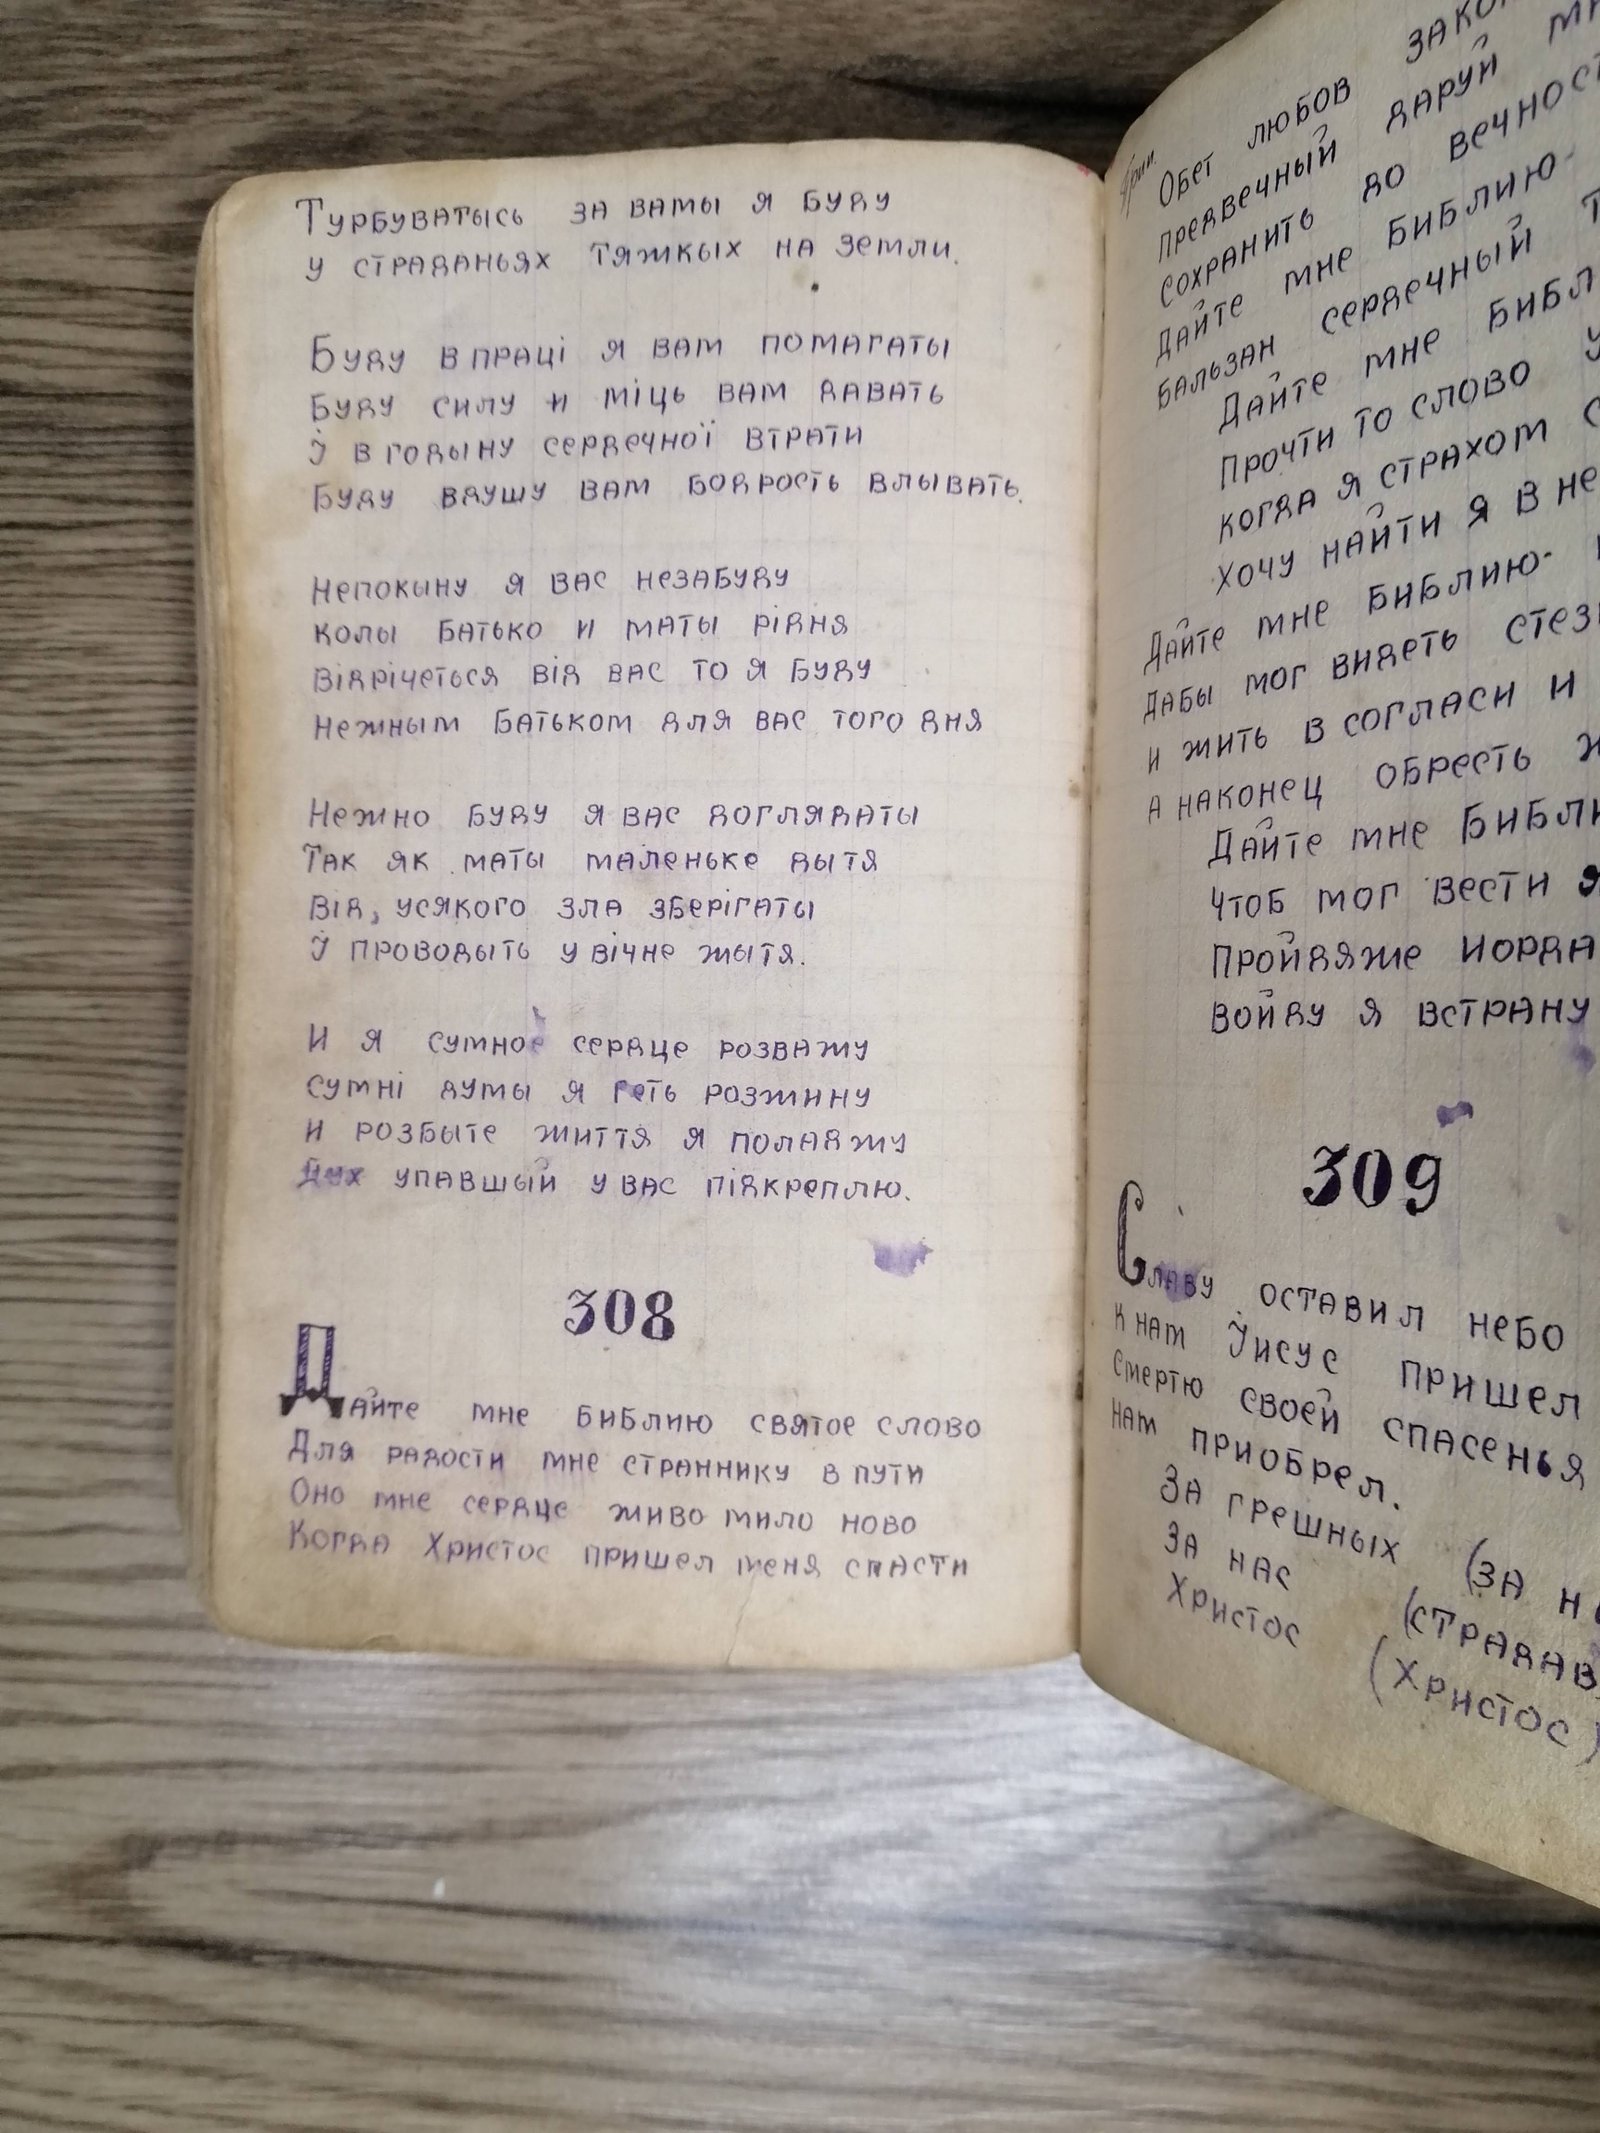 Турбуватысь за вамы я буду
у страданьях тяжкых на земли.
Буду в праці я вам помагаты
Буду силу и міць вам давать
Й в годыну сердечної втрати
Буду вдушу вам бодрость влывать.
Непокыну я вас незабуду
колы батько и маты рідня
відрічеться від вас то я буду
нежным батьком для вас того дня
Нежно буду я вас доглядаты
Так як маты маленьке дытя
Від, усякого зла зберігаты
Й проводыть у вічне жытя.
И я сумное сердце розважу
сумні думы я геть розжину
и розбыте життя я поладжу
Дух упавшый у вас підкреплю.
308
Дайте мне библию святое слово
Для радости мне страннику в пути
Оно мне сердце живо мило ново
Когда Христос пришел меня спасти
Прип.
Обет любов
предвечный даруй
сохранить до
Дайте мне библию-
бальзан сердечный
Дайте мне
Прочти то слово
когда я страхом
хочу найти я в
Дайте мне библию-
дабы мог видеть
и жить в согласи и
а наконец обресть
Дайте мне
Чтоб мог вести
Пройдяже
войду я встрану
309
Славу оставил небо
к нам Йисус пришел
Смертю своей спасенья
нам приобрел.
За грешных (за
За нас
Христос (Христос)